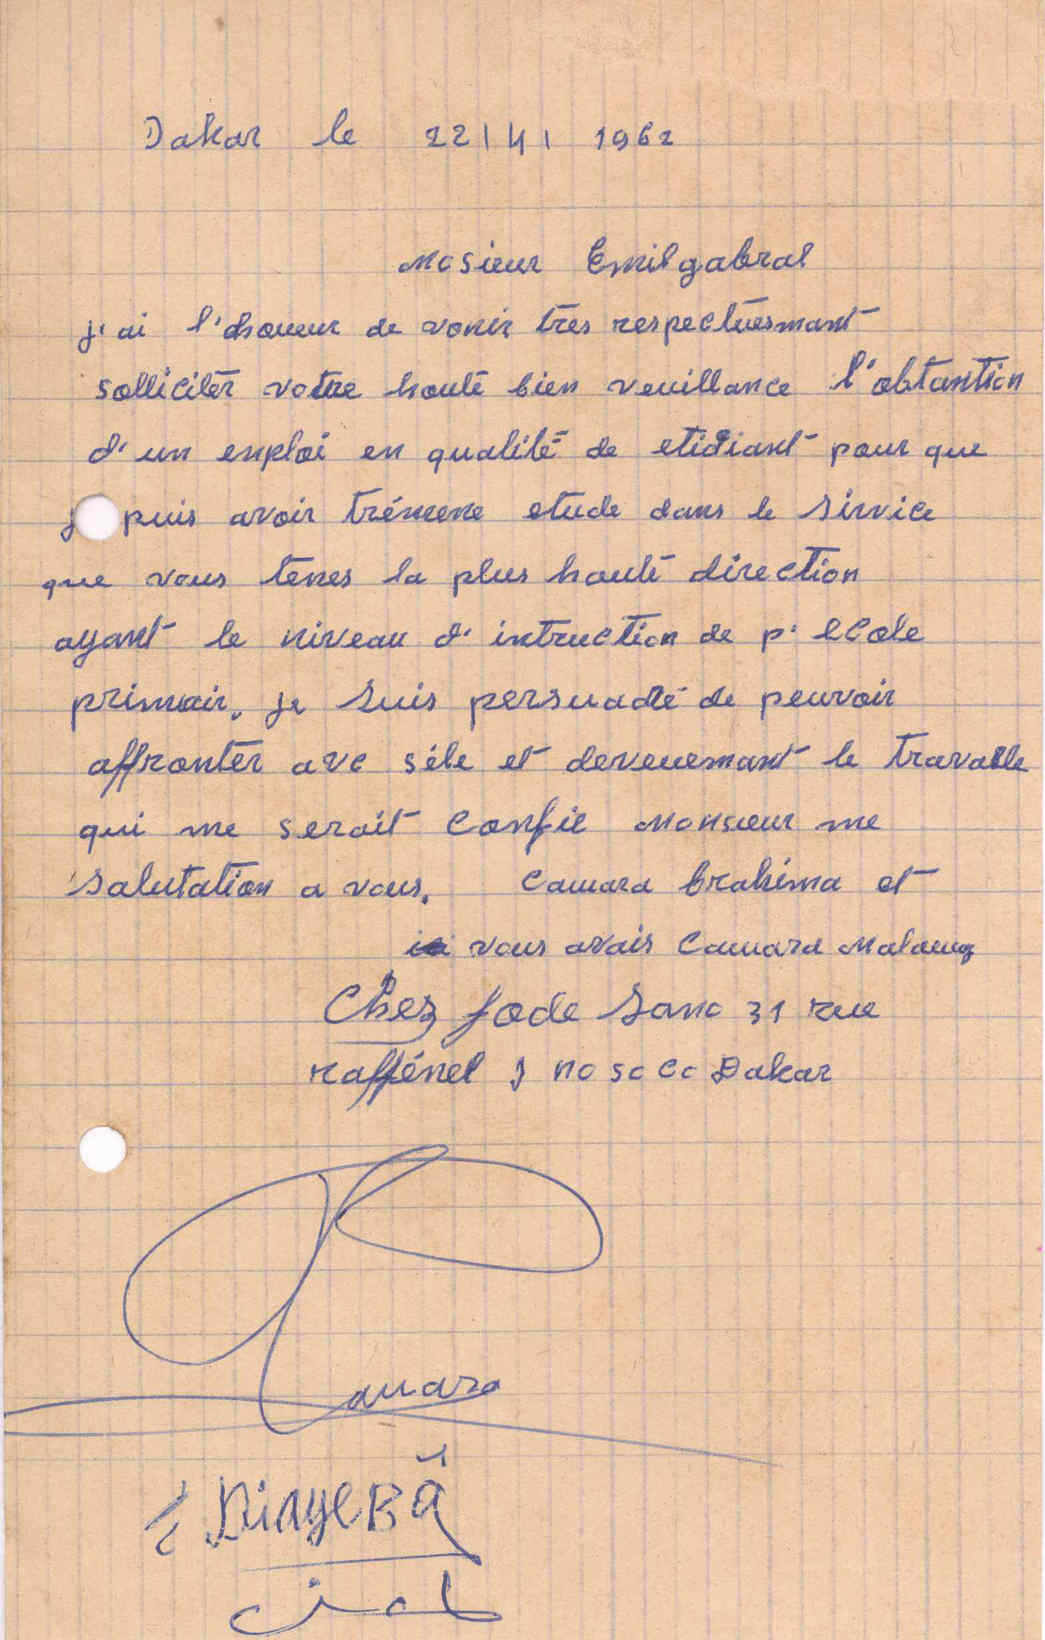 Dakar le 22/4/ 1962
Mosieur Emilgabral
j'ai l'honeur de venir tres respectuesmant
solliciter votre haute bien veuillance l'obtantion
d'un emploi en qualité de etidiant pour que
puis avoir etude dans le sirvice
que vous tenes la plus haute direction
ayant le niveau d'intruction de p' ecole
primair. je suis persuadé de peuvoir
affronter ave séle et devenemant le travalle
qui me serait confie Monsieur me
salutation a vous. Camara brahima et
vous avais Camara Malang
Chez fode Sano 31 rue
raffénel Dakar
Camara